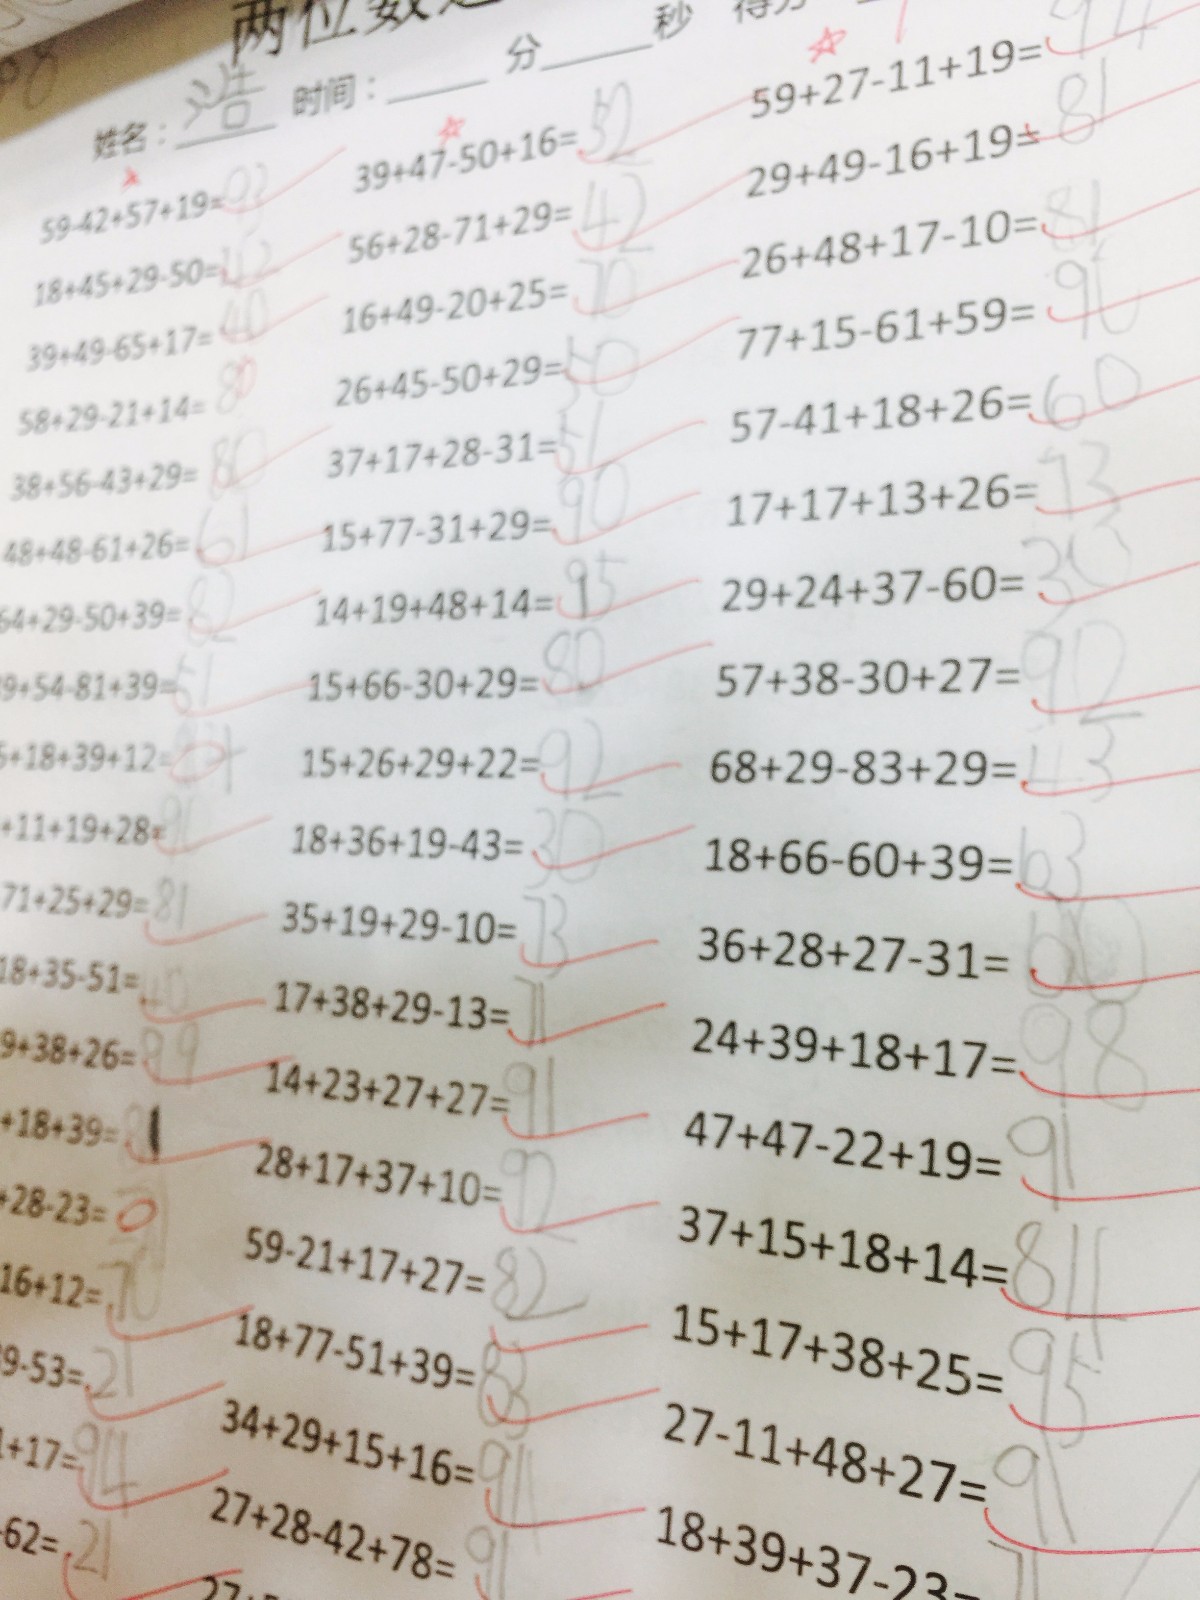 98
两位数
姓名：浩 时间：____ 分____秒 得分
59-42+57+19=93
18+45+29-50=42
39+49-65+17=40
58+29-21+14=80
38+56-43+29=80
48+48-61+26=61
64+29-50+39=82
9+54-81+39=51
+18+39+12=
+11+19+28=91
71+25+29=81
18+35-51=40
9+38+26=99
+18+39=81
+28-23=
16+12=70
39-53=21
+17=94
-62=21
39+47-50+16=52
56+28-71+29=42
16+49-20+25=70
26+45-50+29=50
37+17+28-31=51
15+77-31+29=90
14+19+48+14=95
15+66-30+29=80
15+26+29+22=92
18+36+19-43=30
35+19+29-10=73
17+38+29-13=71
14+23+27+27=91
28+17+37+10=92
59-21+17+27=82
18+77-51+39=83
34+29+15+16=94
27+28-42+78=91
59+27-11+19=94
29+49-16+19=81
26+48+17-10=81
77+15-61+59=90
57-41+18+26=60
17+17+13+26=73
29+24+37-60=30
57+38-30+27=92
68+29-83+29=43
18+66-60+39=63
36+28+27-31=60
24+39+18+17=98
47+47-22+19=91
37+15+18+14=84
15+17+38+25=95
27-11+48+27=91
18+39+37-23=71